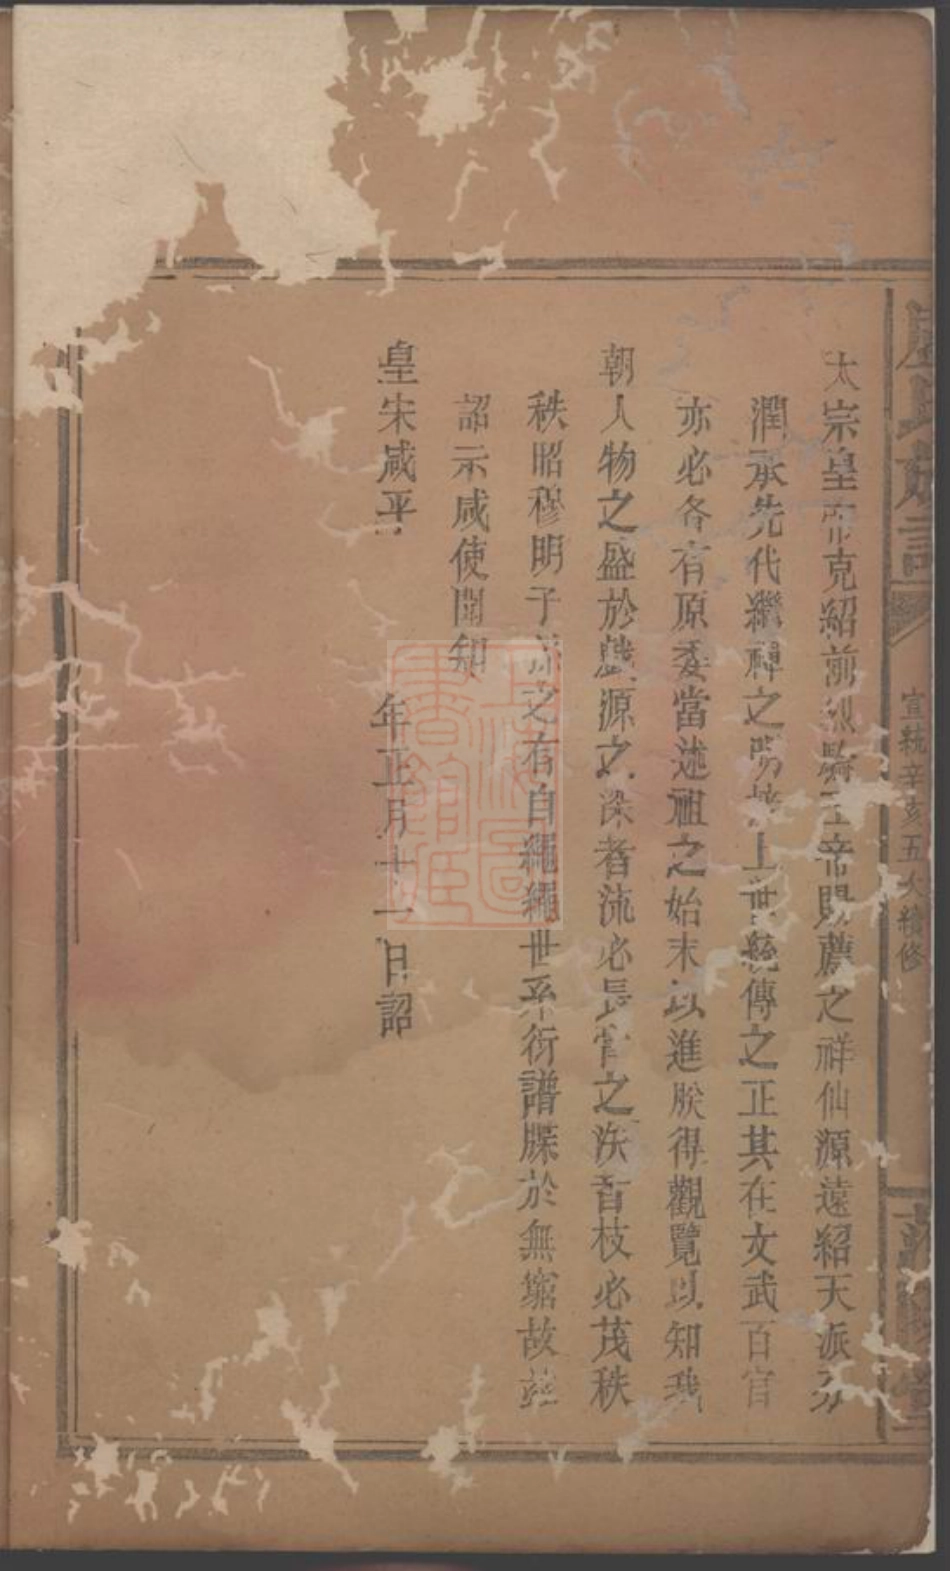 太宗皇帝克紹前烈 帝賜薦之祥仙源遠紹天派分
潤承先代繼禪之 上世統傳之正其在文武百官
亦必各有原委當述祖之始末以進朕得觀覽以知我
朝人物之盛於戲源之深者流必長 之 者枝必茂秩
秩昭穆明子孫之有自繩繩世系衍譜牒於無窮故茲
詔示咸使聞知
皇宋咸平 年正月十一日詔
宣統辛亥五次續修
上海圖書館藏